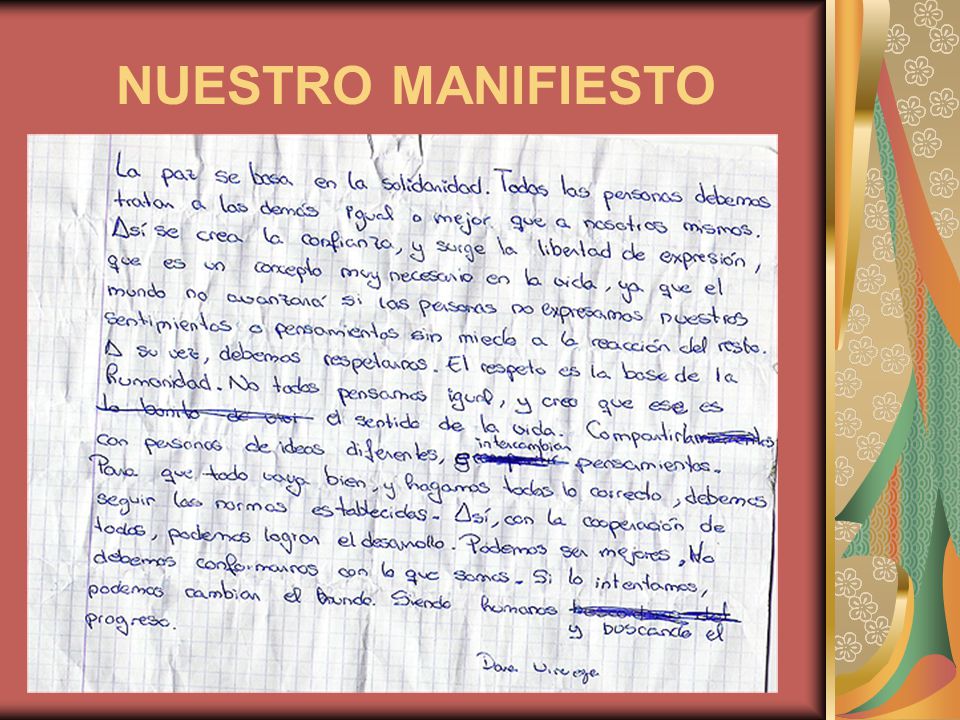 NUESTRO MANIFIESTO
La paz se basa en la solidaridad. Todas las personas debemos
tratar a los demás igual o mejor que a nosotros mismos.
Así se crea la confianza, y surge la libertad de expresión,
que es un concepto muy necesario en la vida, ya que el
mundo no avanzará si las personas no expresamos nuestros
sentimientos o pensamientos sin miedo a la reacción del resto.
A su vez, debemos respetarnos. El respeto es la base de la
humanidad. No todos pensamos igual, y creo que ese es
lo bonito de el sentido de la vida. Compartirla
con personas de ideas diferentes, intercambiar pensamientos.
Para que todo vaya bien, y hagamos todos lo correcto, debemos
seguir las normas establecidas. Así, con la cooperación de
todos, podemos lograr el desarrollo. Podemos ser mejores, No
debemos conformarnos con lo que somos. Si lo intentamos,
podemos cambiar el mundo. Siendo humanos
y buscando el
progreso.